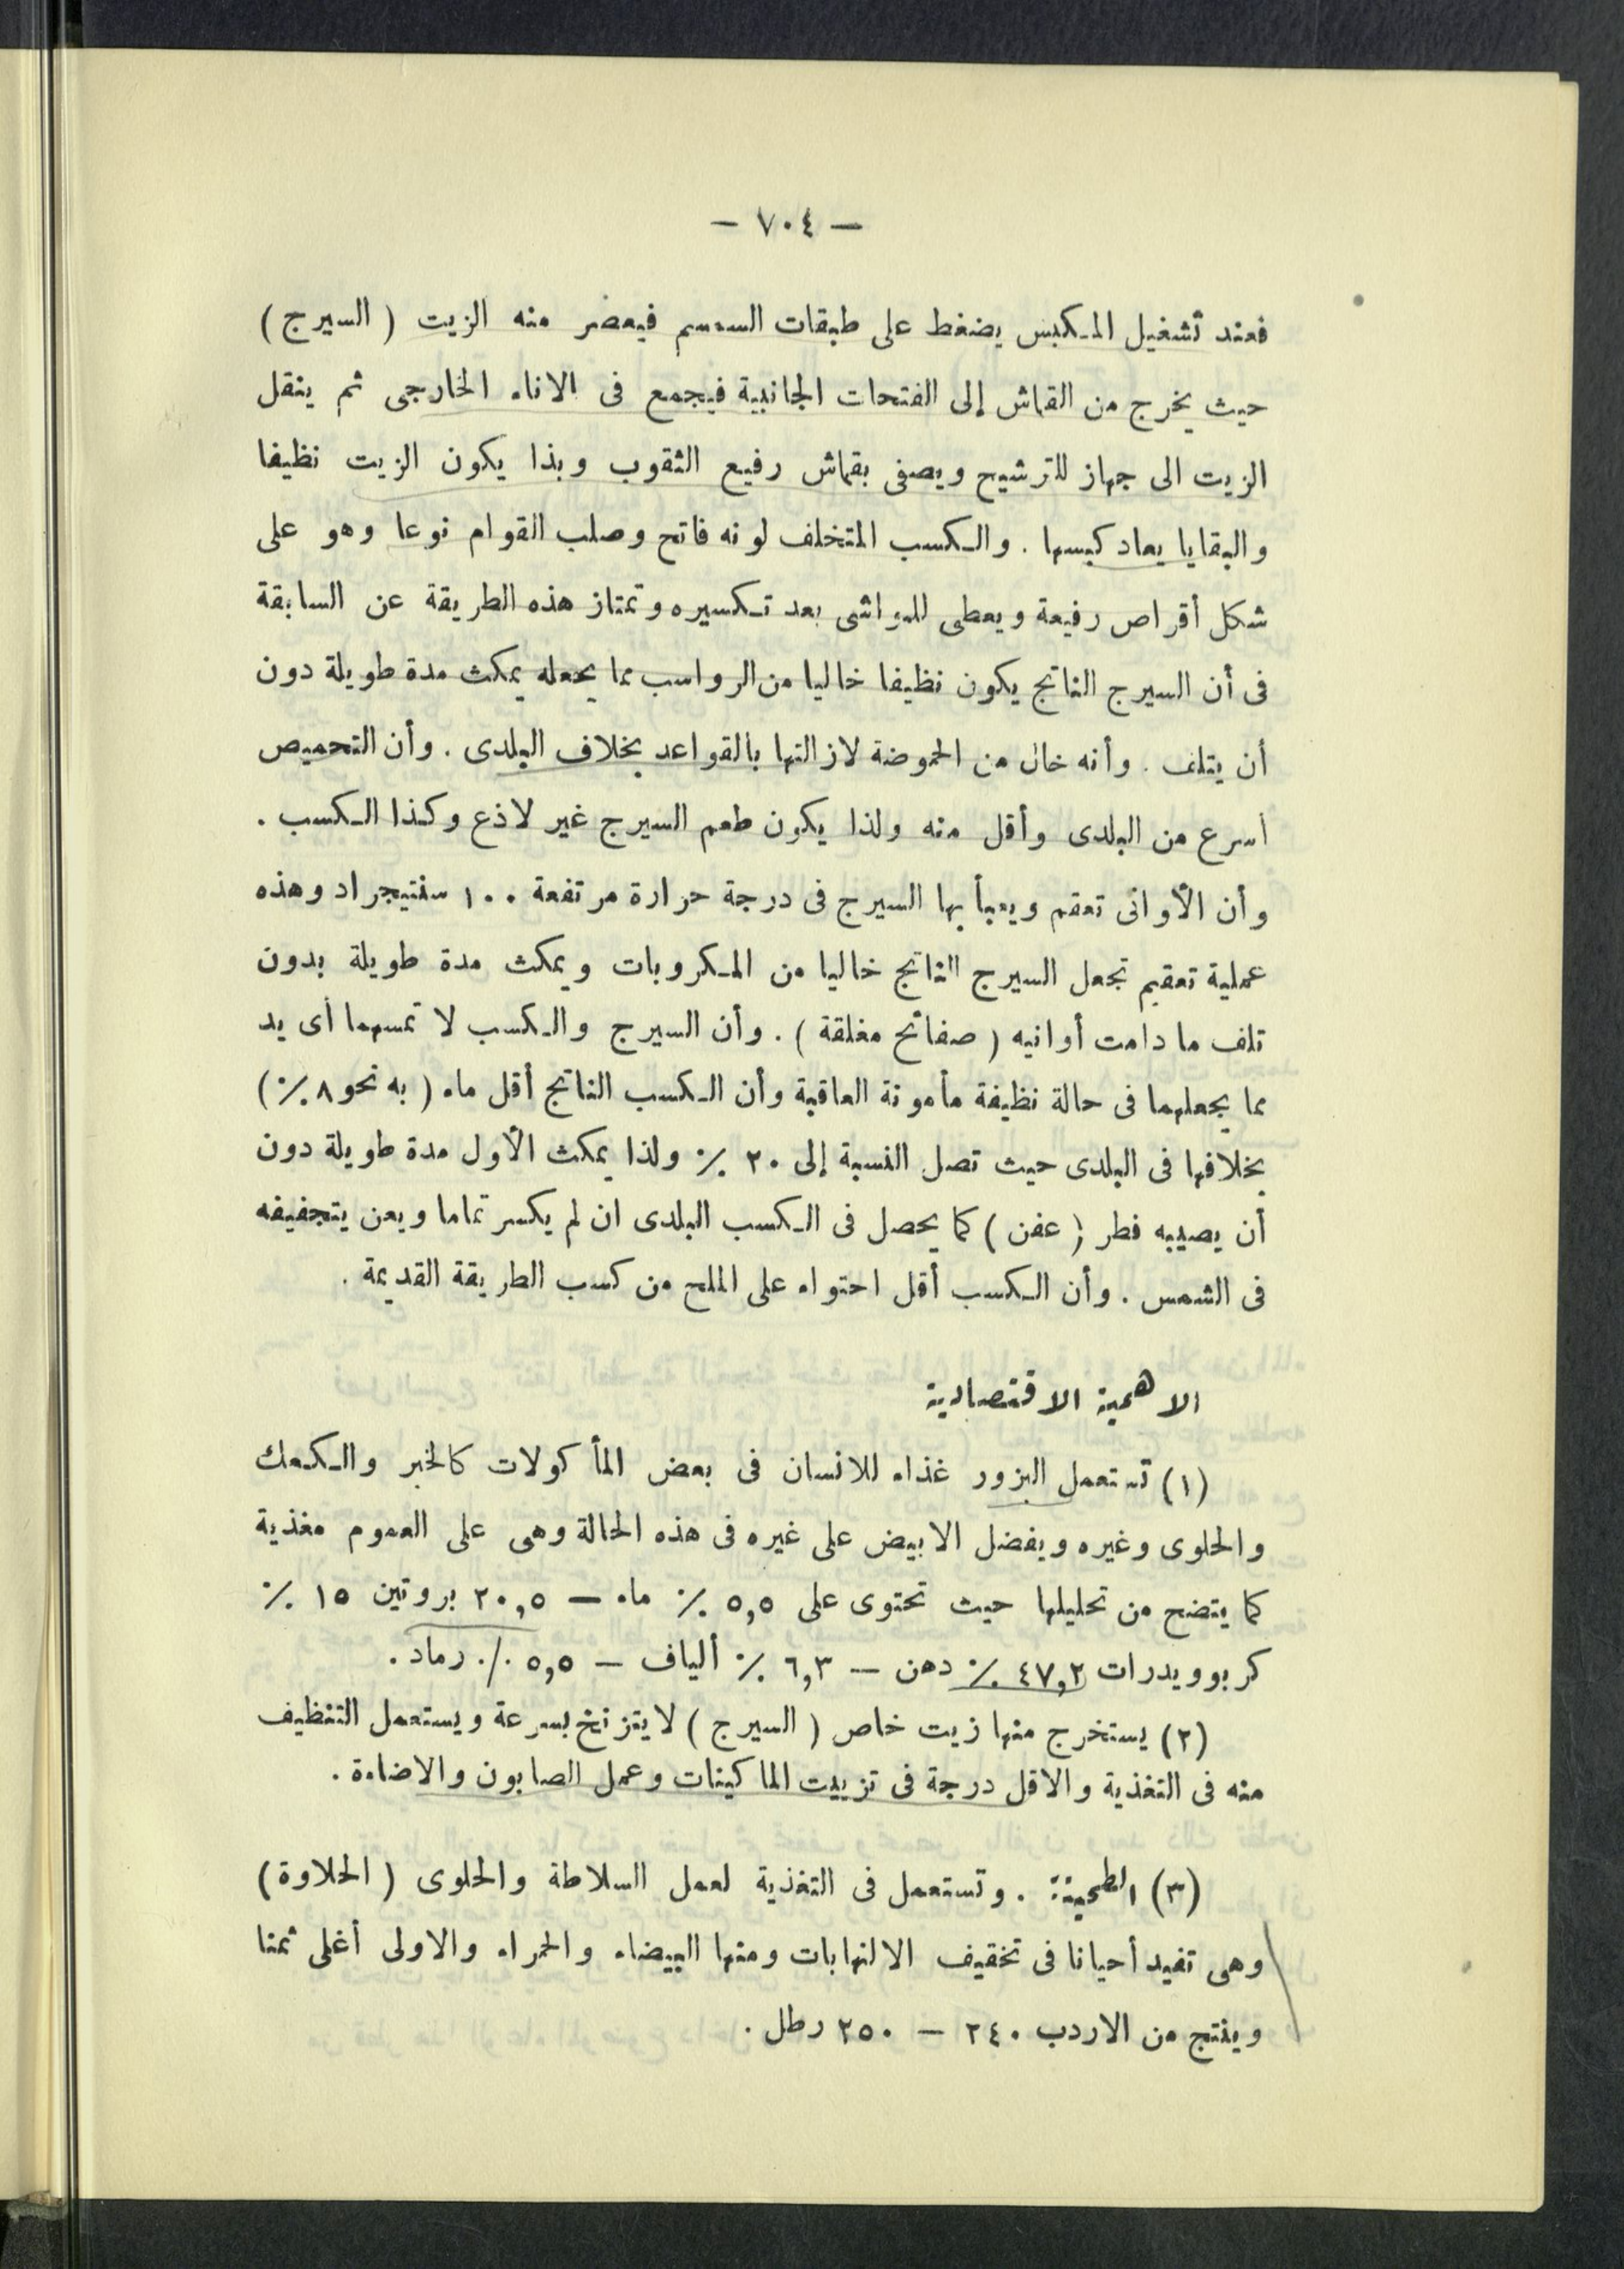 — ٧٠٤ —
فعند تشغيل المكبس يضغط على طبقات السمسم فيعصر منه الزيت ( السيرج )
حيث يخرج من القماش إلى الفتحات الجانبية فيجمع فى الاناء الخارجى ثم ينقل
الزيت الى جهاز للترشيح ويصفى بقماش رفيع الثقوب وبذا يكون الزيت نظيفا
والبقايا يعاد كبسها . والكسب المتخلف لونه فاتح وصلب القوام نوعا وهو على
شكل أقراص رفيعة ويعطى للمواشى بعد تكسيره وتمتاز هذه الطريقة عن السابقة
فى أن السيرج الناتج يكون نظيفا خاليا من الرواسب مما يجعله يمكث مدة طويلة دون
أن يتلف . وأنه خال من الحموضة لازالتها بالقواعد بخلاف البلدى . وأن التحميص
أسرع من البلدى وأقل منه ولذا يكون طعم السيرج غير لاذع وكذا الكسب .
وأن الأوانى تعقم ويعبأ بها السيرج فى درجة حرارة مرتفعة ١٠٠ سنتيجراد وهذه
عملية تعقيم تجعل السيرج الناتج خاليا من المكروبات ويمكث مدة طويلة بدون
تلف ما دامت أوانيه ( صفائح مغلقة ) . وأن السيرج والكسب لا تمسهما أى يد
مما يجعلهما فى حالة نظيفة مأمونة العاقبة وأن الكسب الناتج أقل ماء ( به نحو ٨ ٪ )
بخلافها فى البلدى حيث تصل النسبة إلى ٢٠ ٪ ولذا يمكث الأول مدة طويلة دون
أن يصيبه فطر ( عفن ) كما يحصل فى الكسب البلدى ان لم يكسر تماما ويعن يتجفيفه
فى الشمس . وأن الكسب أقل احتواء على الملح من كسب الطريقة القديمة .
الاهمية الاقتصادية
(١) تستعمل البزور غذاء للانسان فى بعض المأكولات كالخبز والكعك
والحلوى وغيره ويفضل الابيض على غيره فى هذه الحالة وهى على العموم مغذية
كما يتضح من تحليلها حيث تحتوى على ٥,٥ ٪ ماء — ٢٠,٥ بروتين ١٥ ٪
كربوويدرات ٤٧,٢ ٪ دهن — ٦,٣ ٪ ألياف — ٥,٥ ٪ رماد .
(٢) يستخرج منها زيت خاص ( السيرج ) لا يتزنخ بسرعة ويستعمل التنظيف
منه فى التغذية والاقل درجة فى تزييت الماكينات وعمل الصابون والاضاءة .
(٣) الطحينة : . وتستعمل فى التغذية لعمل السلاطة والحلوى ( الحلاوة )
وهى تفيد أحيانا فى تخفيف الالتهابات ومنها البيضاء والحمراء والاولى أغلى ثمنا
وينتج من الاردب ٢٤٠ — ٢٥٠ رطل .